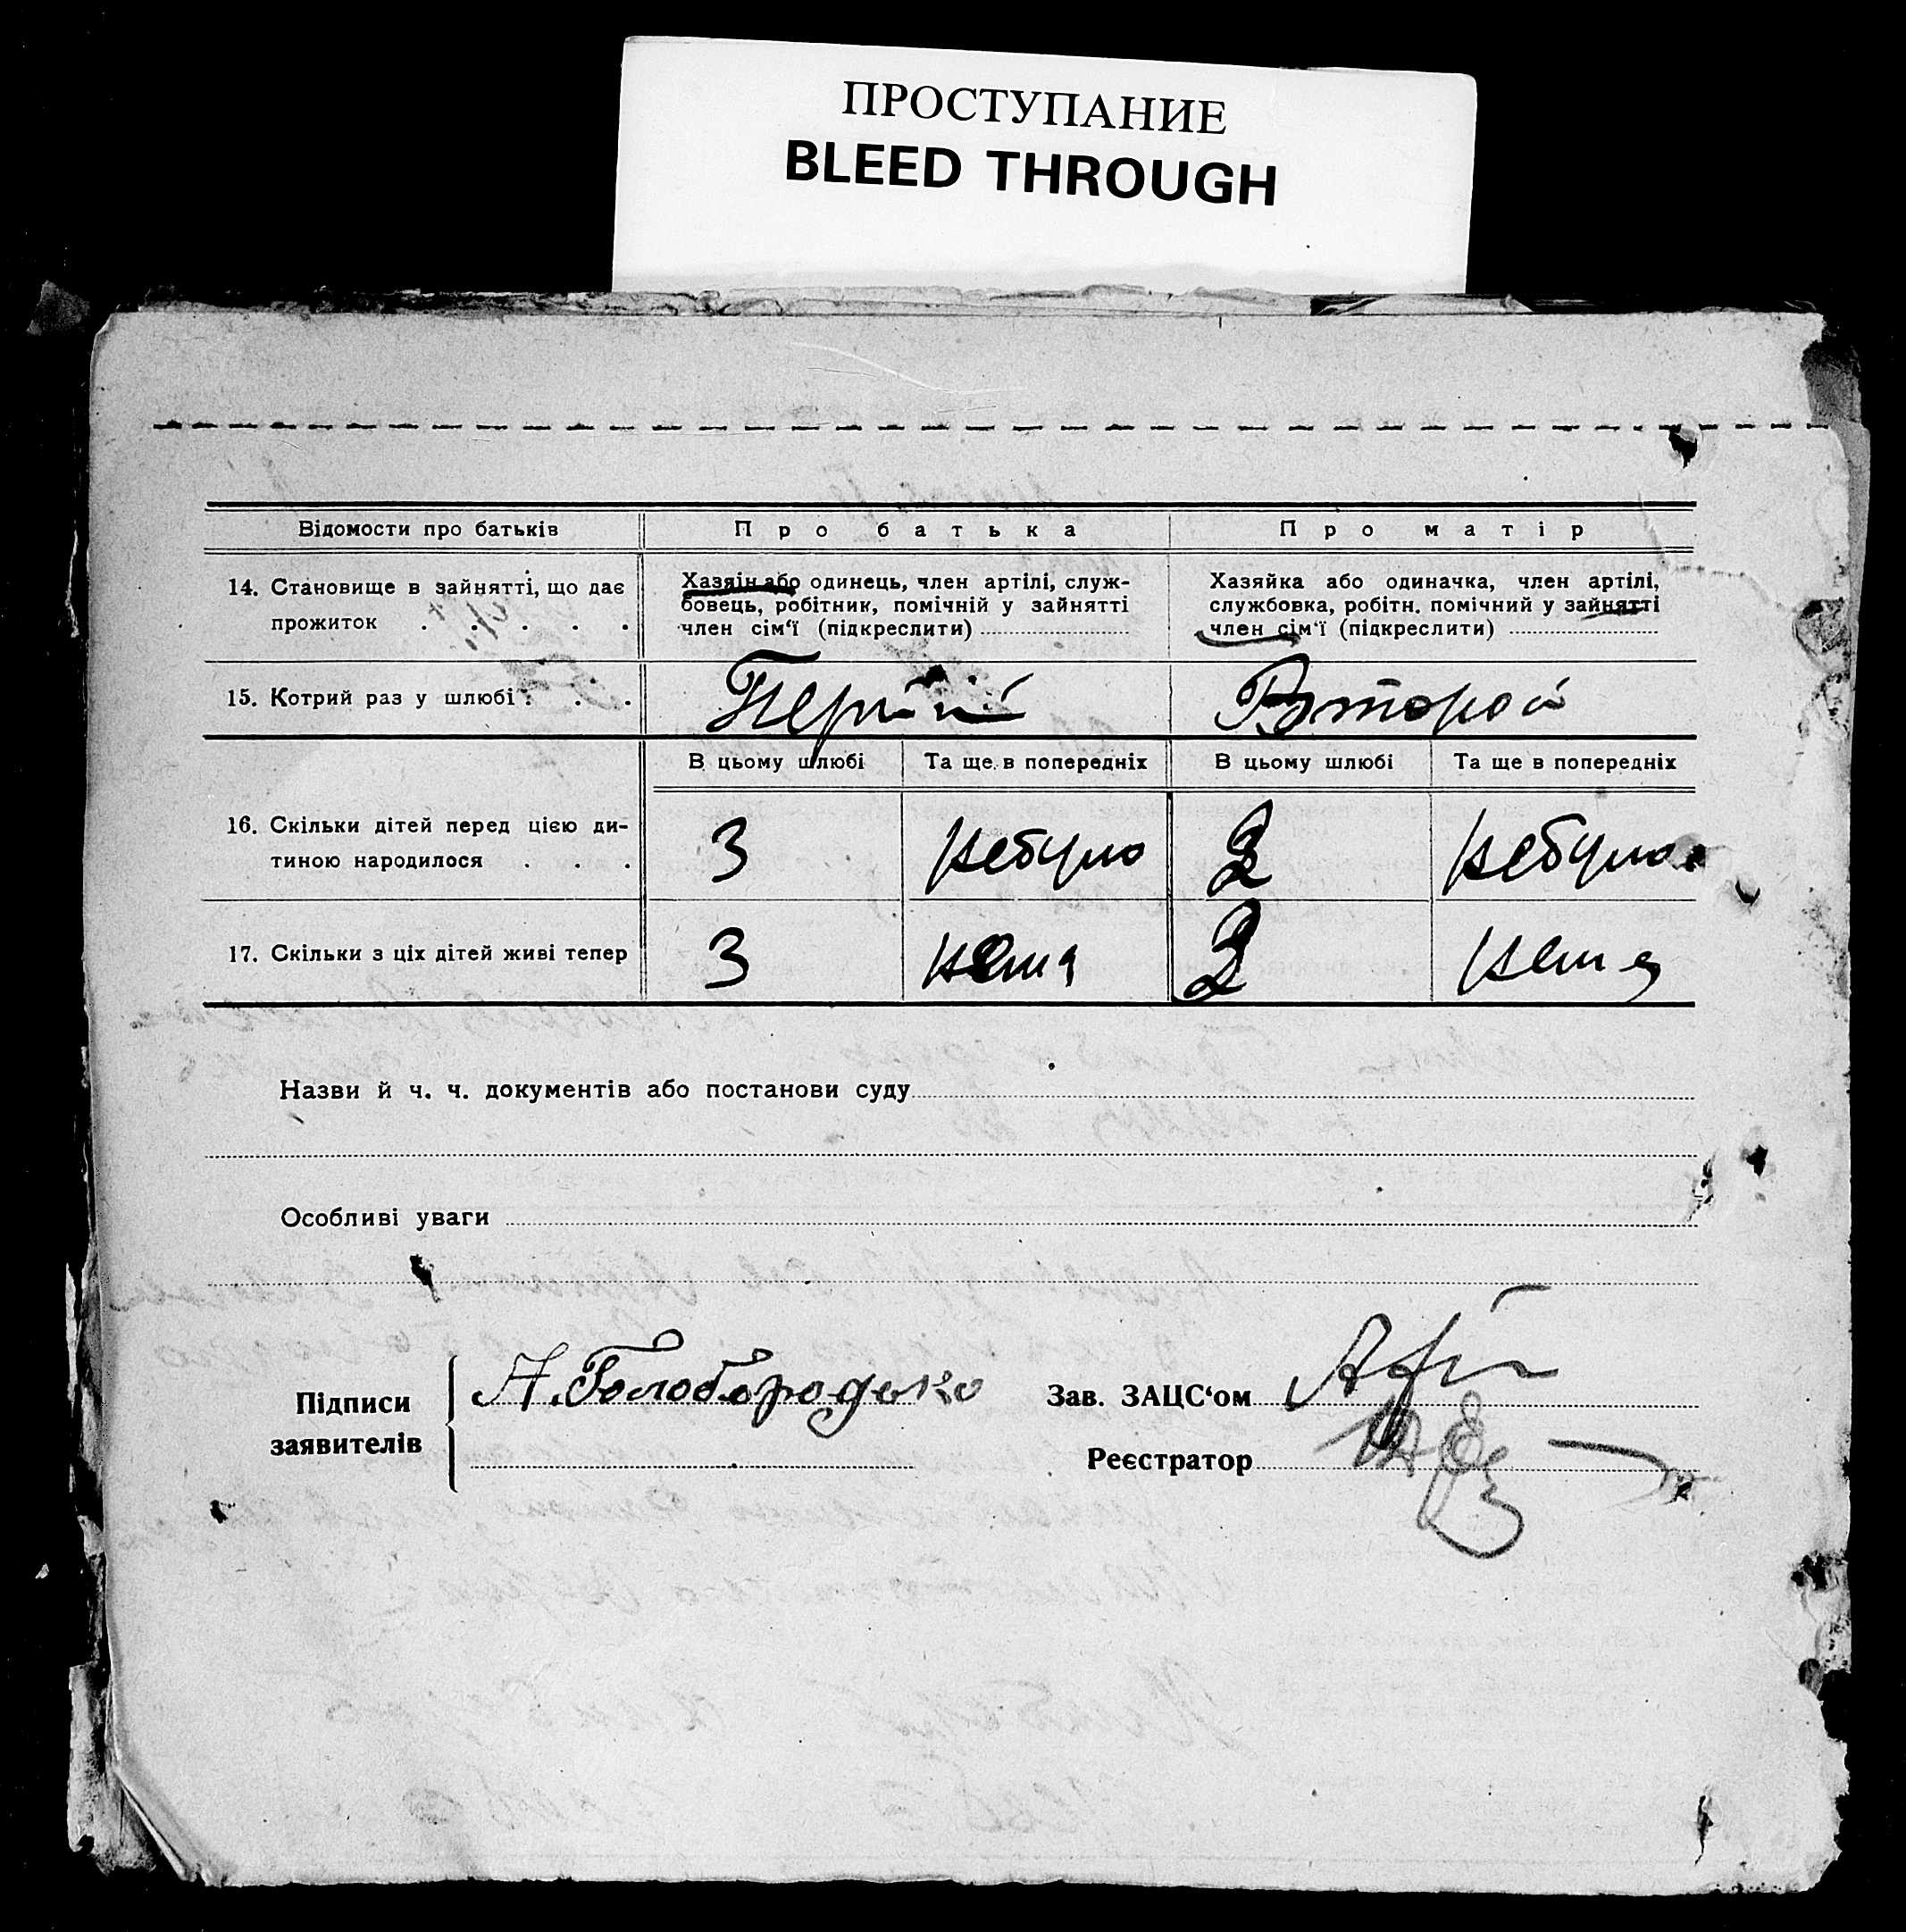 ПРОСТУПАНИЕ
BLEED THROUGH
Відомости про батьків
Про батька
Про матір
14. Становище в зайнятті, що дає
прожиток . . . . .
Хазяїн або одинець, член артілі, служ-
бовець, робітник, помічній у зайнятті
член сім‘ї (підкреслити)
Хазяйка або одиначка, член артілі,
службовка, робітн. помічний у зайнятті
член сім‘ї (підкреслити)
15. Котрий раз у шлюбі . . .
Второй
В цьому шлюбі
Та ще в попередніх
В цьому шлюбі
Та ще в попередніх
16. Скільки дітей перед цією ди-
тиною народилося . . .
3
небуло
2
небуло
17. Скільки з ціх дітей живі тепер
3
нема
2
нема
Назви й ч. ч. документів або постанови суду
Особливі уваги
Підписи
заявителів
А. Голобородько
Зав. ЗАЦС‘ом
Реєстратор